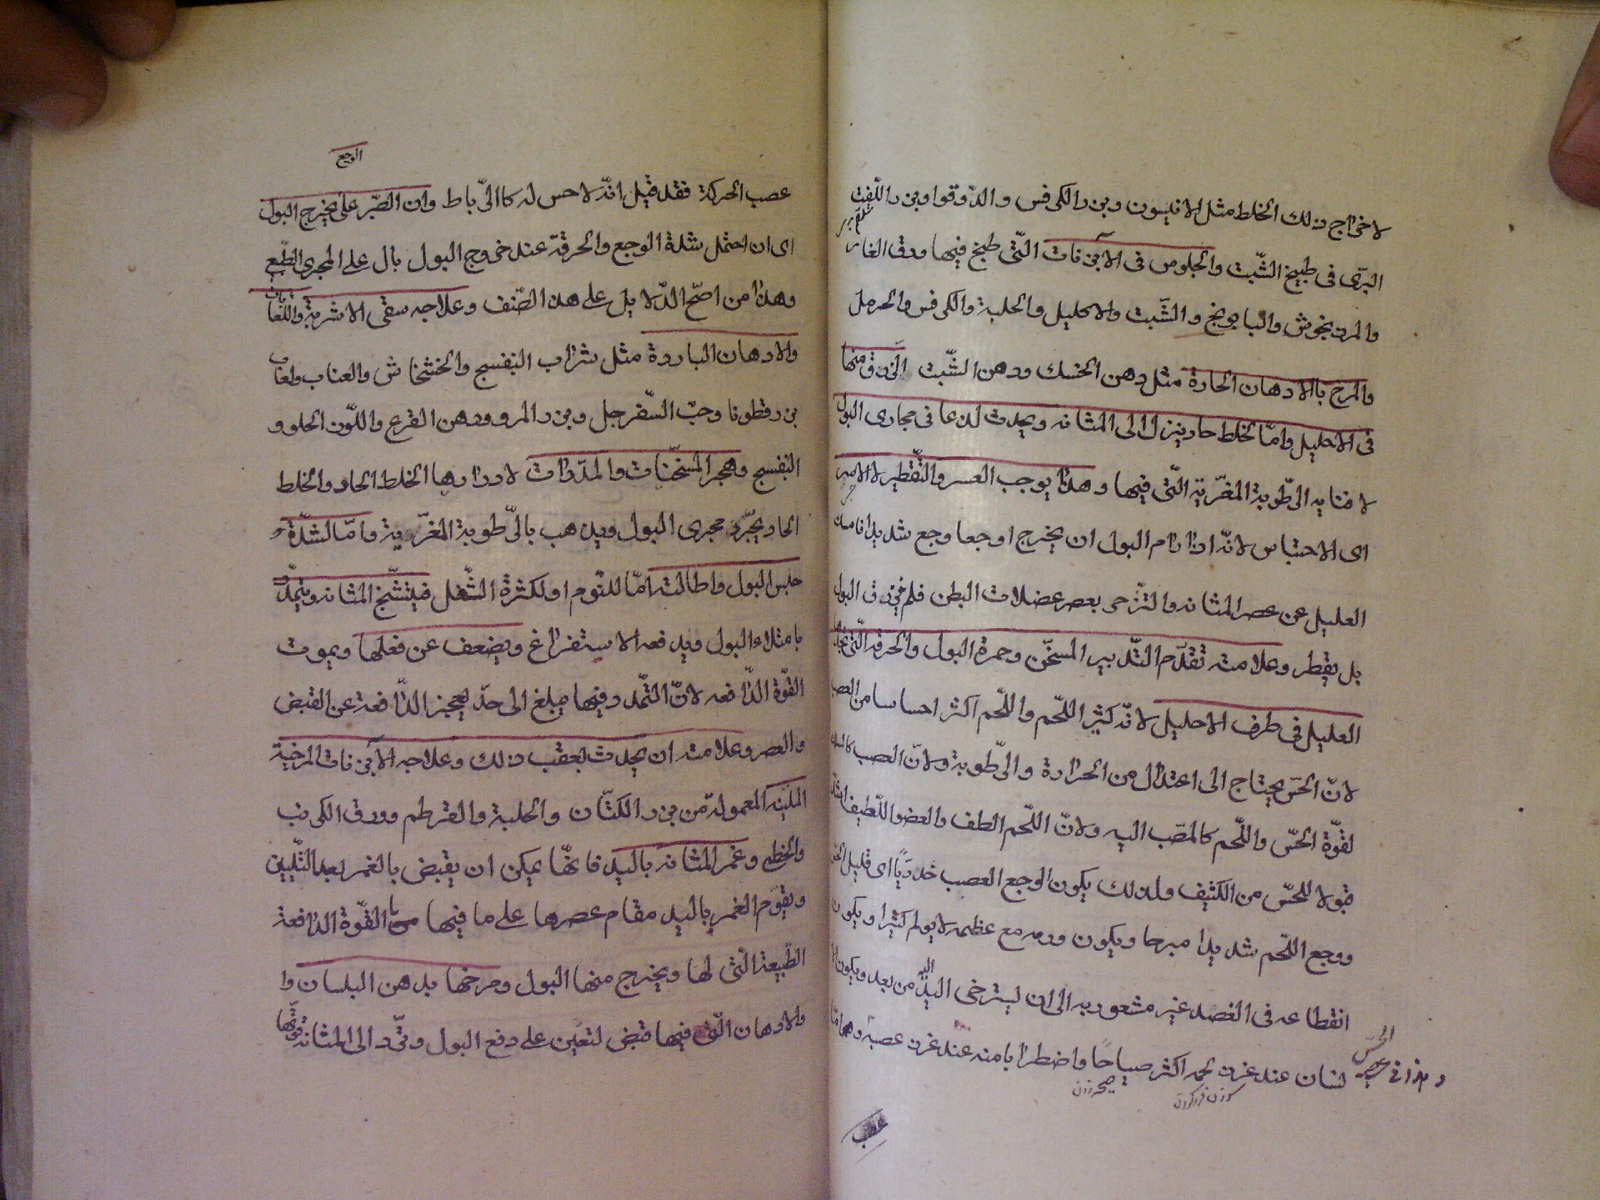 لاخراج ذلك الخلط مثل الانيسون وبزر الكرفس والدوقوا وبزر اللفت
البرّى فى طبيخ الشّبت والجلوس فى الابزنات التّى طبخ فيها ورق الغار
والمرزنجوش والبابونج والشّبت والاكليل والحلبة والكرفس والحرمل
والمرخ بالادهان الحارة مثل دهن الخسك ودهن الشّبت الزّرق منها
فى الاحليل وامّا لخلط حاد ينزل الى المثانه ويحدث لدعا فى مجارى البول
لافنايه الرّطوبة المغرّية التّى فيها وهذا يوجب العسر والتّقطير لا الاسر
اى الاحتباس لانّه اذا رام البول ان يخرج اوجعا وجع شديدا
العليل عن عصر المثانه والتزحر بعصر عضلات البطن فلم يخرق البول
بل يقطر وعلامته تقدّم التّدبير المسخّن وحمرة البول والحرقه الّتى
العليل فى طرف الاحليل لانّه كثير اللّحم واللّحم اكثر احساسا من العصب
لانّ الحسّ يحتاج الى اعتدال من الحرارة والرّطوبة ولانّ العصب
لقوّة الحسّ واللّحم كالمصّب اليه ولانّ اللّحم الطف والعضو اللّطيف اشدّ
قبولا للحسّ من الكثيف ولذلك يكون الوجع العصب خدريّا اى قليل
ووجع اللّحم شديدا مبرحا ويكون ورمه مع عظمه لا يولم كثيرا ويكون
انقطاعه فى الفصد غير مشعور به الى ان يسترخى اليد من بعد ويكون
لنسان عند غرز لحمه اكثر صياحًا واضطرابا منه عند غرز عصبة وهذا
عصب
الوجع
عصب الحركة فقد قيل انّه لا حس له كالرّباط وان الصّبر على يخرج البول
اى ان احتمل شدّة الوجع والحرقة عند خروج البول بال على المجرى الطّبيعى
وهذا من اصحّ الدّلايل على هذا الصّنف وعلاجه سقى الاشربة واللّعابات
والادهان الباردة مثل شراب البنفسج والخشخاش والعناب ولعاب
بزر قطونا وحبّ السّفرجل وبزر المرو ودهن القرع واللّوز الحلو و
البنفسج وهجر المسخّنات والمدرات لادرارها الخلط الحاد والخلط
الحاد يجرد مجرى البول ويذهب بالرّطوبة المغرّية وامّا لشدّة
حبس البول واطالته امّا للنّوم او لكثرة الشّغل فيتشنّج المثانه ويتمدّد
بامتلاء البول ويدفعه الاستفراغ ويضعف عن فعلها ويموت
القوّة الدّافعه لانّ التّمدد فيها مبلغ الى حدّ يعجز الدّافعة عن القبض
والعصر وعلامته ان يحدث بعقب ذلك وعلاجه الابزنات المرخية
الملّينه المعمولة من بزر الكتّان والحلبة والقرطم وورق الكرنب
والخطمى وغمر المثانه باليد فانّها يمكن ان يقبض بالغمر بعد التّليين
ويقوم الغمر باليد مقام عصرها على ما فيها القوّة الدافعة
الطّبيعة التّى لها ويخرج منها البول ومرخها بدهن البلسان وا
والادهان الّتى فيها قبض لتعين على دفع البول وتردّ الى المثانه قوّتها